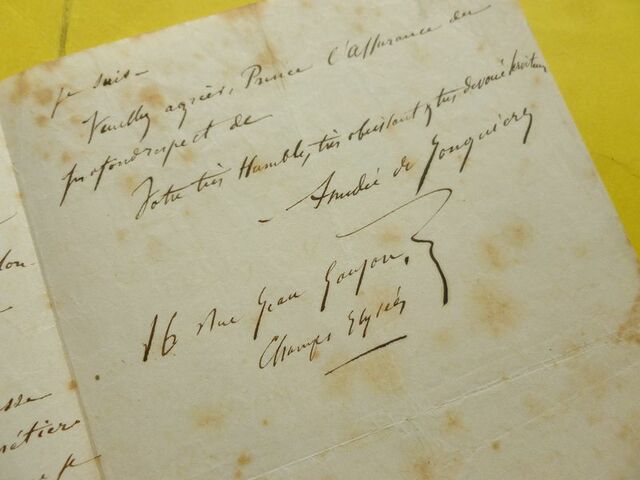 je suis
Veuillez agréer, Prince l'assurance du
profond respect de
Votre très Humble, très obeissant & très dévoué serviteur
Amédée de Jonquières
16 rue Jean Goujon,
Champs Elysées
lon-
sse
métier
je